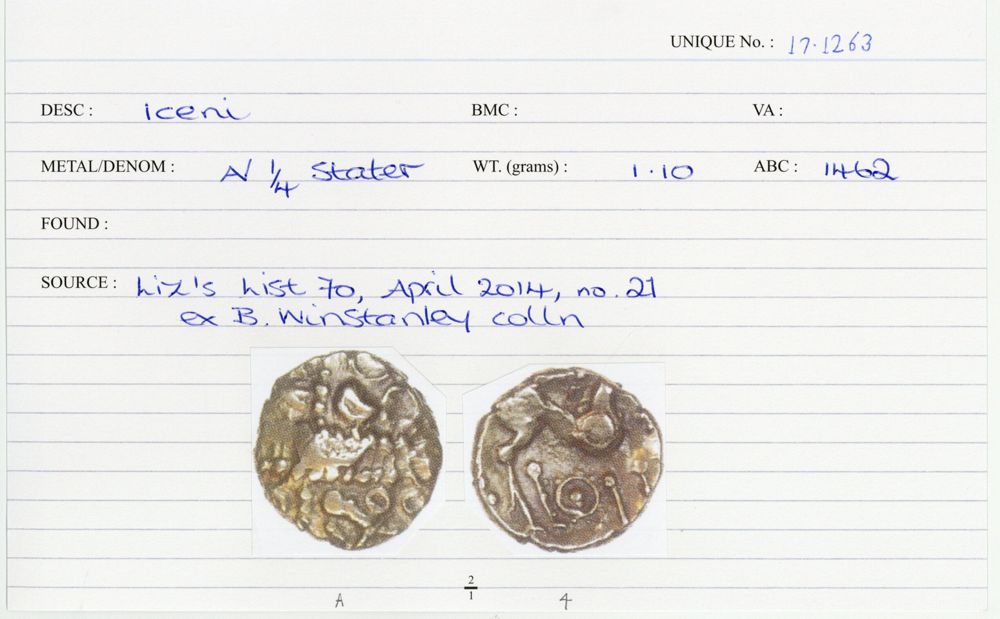 UNIQUE No. : 17.1263
DESC : iceni BMC : VA :
METAL/DENOM : A/ 1/4 Stater WT. (grams) : 1.10 ABC : 1462
FOUND :
SOURCE : Liz's List 70, April 2014, no. 21
ex B. Winstanley colln
2/1
A 4